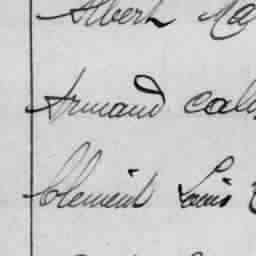 Albert Ma
Armand Cali
Clement Louis